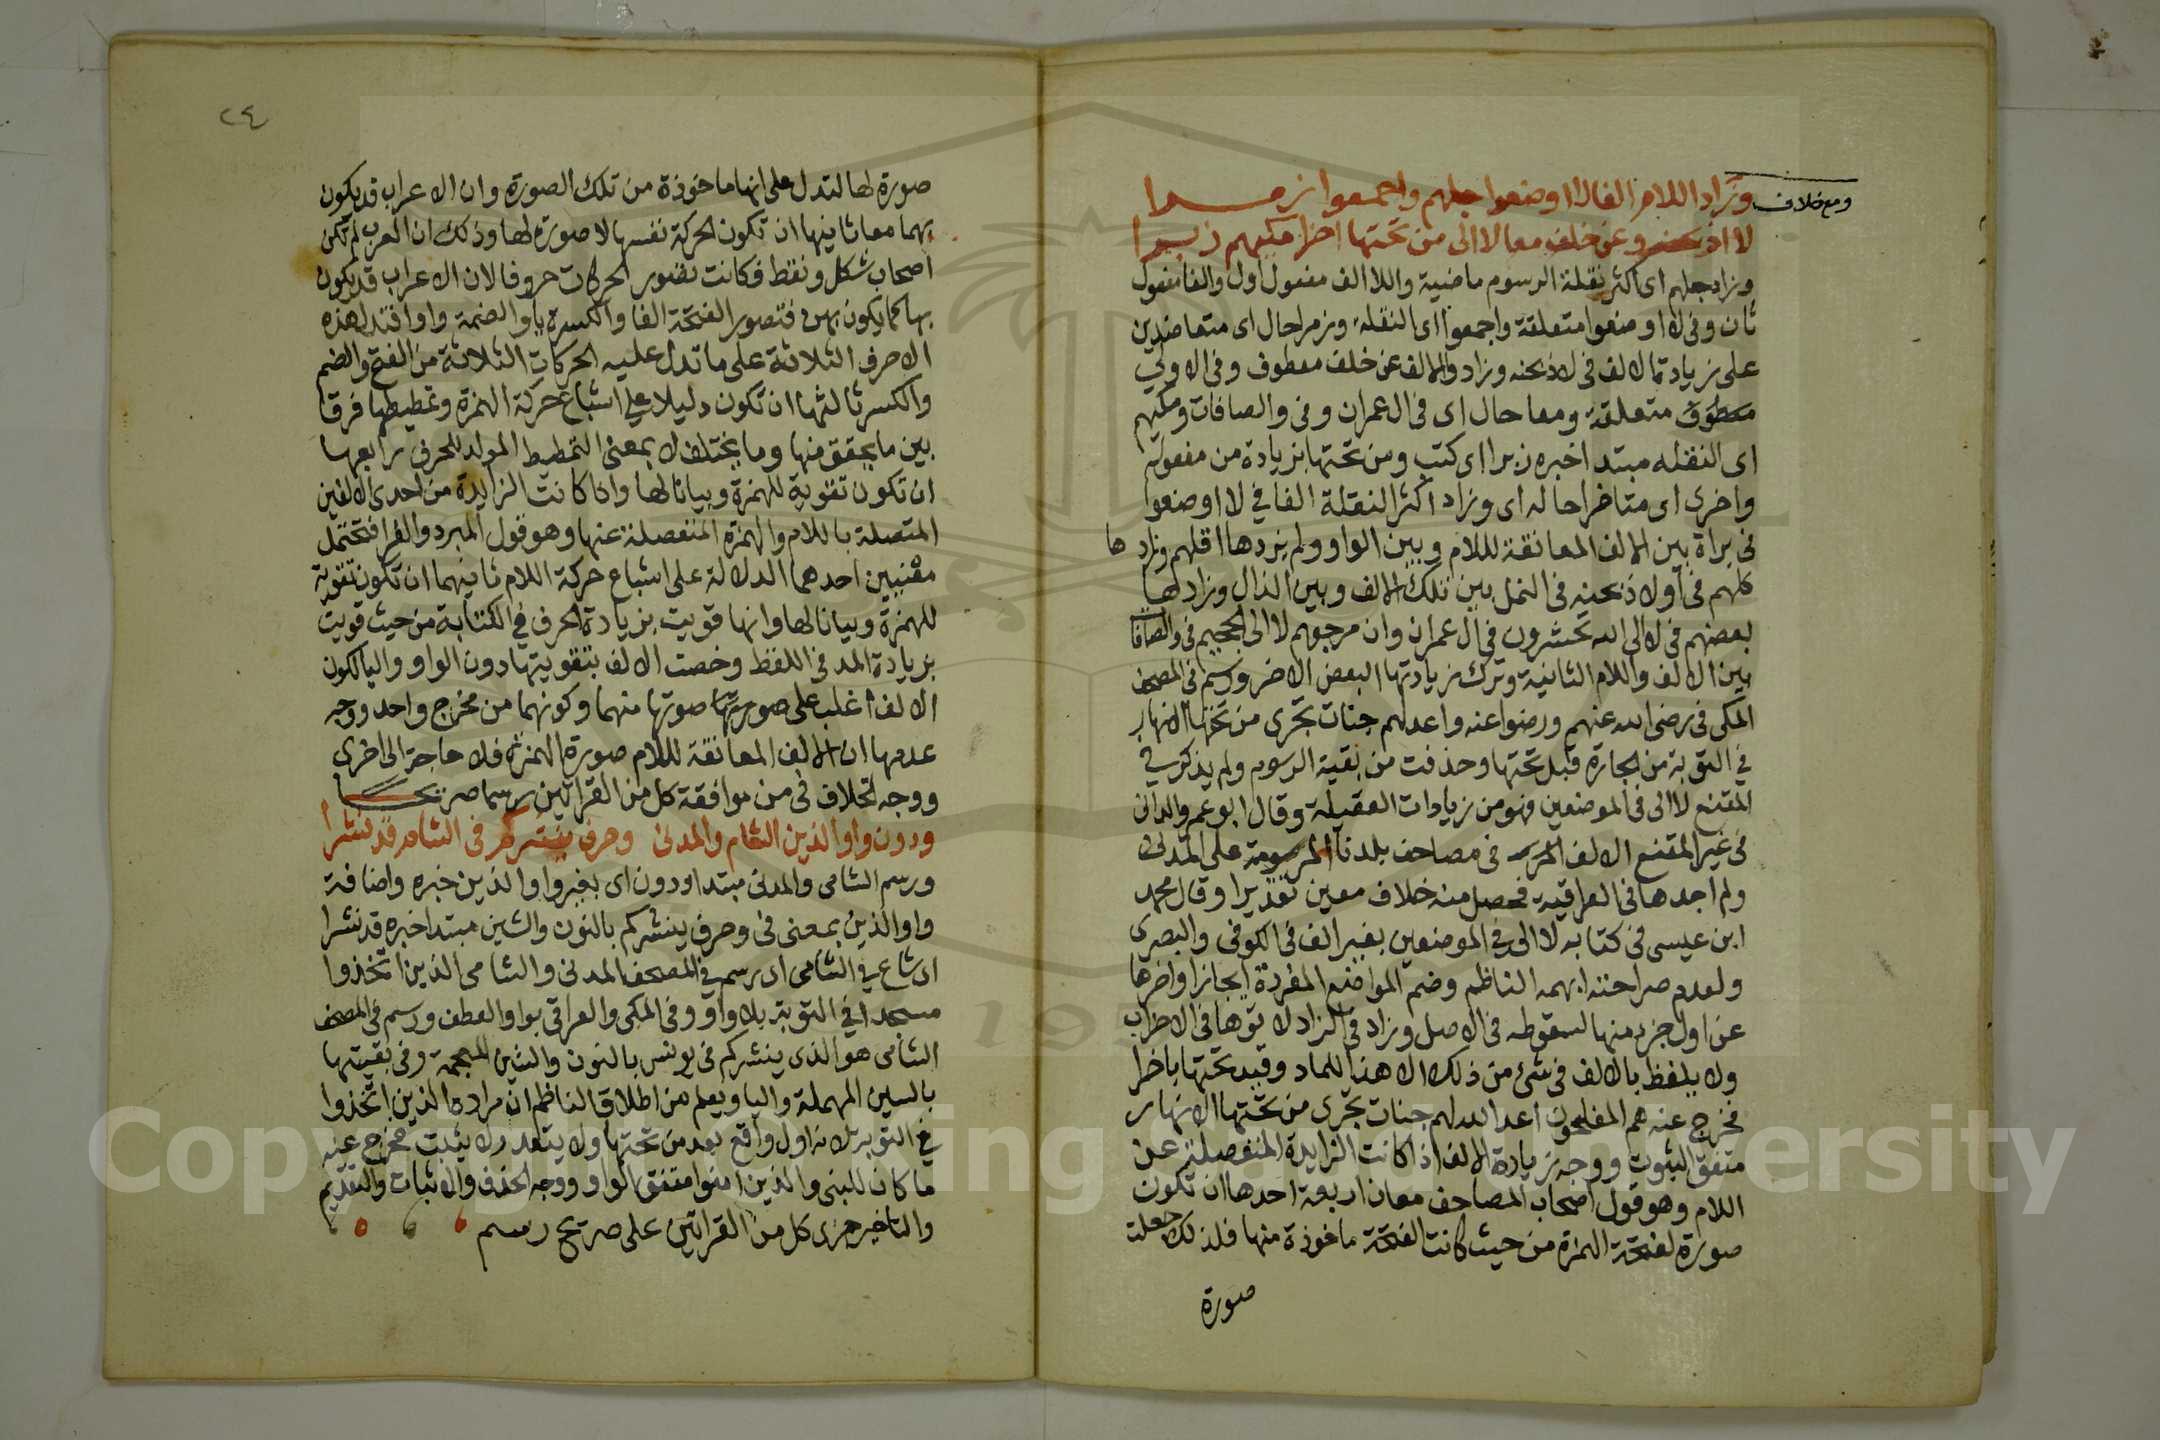 ومع خلاف
وزاد اللام الفا لا اوضعوا جلهم واجمعوا زمرا
لا اذبحنه وعن خلف معا لا الى من تحتها اخرا مكيهم زبرا
وزاد جلهم اى اكثر نقلة الرسوم ماضية واللا الف مفعول اول والفا مفعول
ثان وفى لا اوضعوا متعلقة واجمعوا اى النقلة وزمرا حال اى متعاضدين
على زيادتها لالف فى لا اذبحنه وزاد والالف عن خلف معطوف وفى الاولى
متعلقة ومعا حال اى فى ال عمران وفى والصافات ومكيهم
اى النقله مبتدا خبره زبرا اى كتب ومن تحتها بزيادة من مفعوله
واخرى اى متاخرا حاله اى وزاد اكثر النقلة الفا فى لا اوضعوا
فى براة بين الالف المعانقة لللام وبين الواو ولم يزدها اقلهم وزادها
كلهم فى اولا ذبحنه فى النمل بين تلك الالف وبين الذال وزاد لها
بعضهم فى لا الى الله تحشرون فى ال عمران وان مرجعهم لا الى الجحيم فى والصافات
بين الالف واللام الثانية وترك زيادتها البعض الاخر ورسم فى المصحف
المكى فى رضى الله عنهم ورضوا عنه واعد لهم جنات تجرى من تحتها الانهار
فى التوبة من الجارة قبل تحتها وحذفت من بقية الرسوم ولم يذكر فى
المقنع لا الى فى الموضعين فهو من زيادات العقيلة وقال ابو عمرو الدانى
فى غير المقنع الالف فى مصاحف بلدنا المرسومة على المدنى
ولم اجدها فى العراقية فحصل منه خلاف معين تقديرا وقال محمد
ابن عيسى فى كتابه لا الى فى الموضعين بغير الف فى الكوفى والبصرى
ولعدم صراحته ابهمه الناظم وضم المواضع المفردة ايجازا واخرها
عن اول جزء منها لسقوطه فى الاصل وزاد فى الزاد لا توها فى الاحزاب
ولا يلفظ بالالف فى شئ من ذلك الا هذا للماد وقيد تحتها باخرا
فخرج عنه هم المفلحون اعد الله لهم جنات تجرى من تحتها الانهار
متفق الثبوت ووجه زيادة الالف اذا كانت الزايدة المنفصلة عن
اللام وهو قول اصحاب المصاحف معان اربعة احدها ان تكون
صورة لفتحة الهمزة من حيث كانت الفتحة ماخوذة منها فلذلك جعلت
صورة
٢٤
صورة لها لتدل على انها ماخوذة من تلك الصورة وان الاعراب قد يكون
بهما معا ثانيها ان تكون الحركة نفسها لا صورة لها وذلك ان العرب لم تكن
اصحاب شكل ونقط فكانت تصور الحركات حروفا لان الاعراب قد يكون
بها كما يكون بهن فتصور الفتحة الفا والكسرة يا والضمة واوا فتدل هذه
الاحرف الثلاثة على ما تدل عليه الحركات الثلاثة من الفتح والضم
والكسر ثالثها ان تكون دليلا على اشباع حركة الهمزة وتمطيطها فرقا
بين ما يحقق منها وما يختلف لا بمعنى التمطيط المولد للحرف رابعها
ان تكون تقوية للهمزة وبيانا لها واذا كانت الزايدة من احدى الالفين
المتصلة باللام والهمزة المنفصلة عنها وهو قول المبرد والفرا فتحتمل
معنيين احدهما الدلالة على اشباع حركة اللام ثانيهما ان تكون تقوية
للهمزة وبيانا لها وانها قويت بزيادة الحرف فى الكتابة من حيث قويت
بزيادة المد فى اللفظ وخصت الالف بتقويتها دون الواو واليا لكون
الالف اغلب على صورتها منهما وكونهما من مخرج واحد ووجه
عدمها ان الالف المعانقة لللام صورة الهمزة فلا حاجة الى اخرى
ووجه الخلاف فى من موافقة كل من القراتين رسما صريحا
ودون واو الذين الشام والمدنى وحرف ينشركم فى الشام قد نشرا
ورسم الشامى والمدنى مبتدا ودون اى بغير واو الذين خبره واضافة
واو الذين بمعنى فى وحرف ينشركم بالنون والشين مبتدا خبره قد نشرا
اى شاع فى الشامى اى رسم فى المصحف المدنى والشامى الذين اتخذوا
مسجدا فى التوبة بلا واو وفى المكى والعراقى بواو العطف ورسم فى المصحف
الشامى هو الذى ينشركم فى يونس بالنون والشين المعجمة وفى بقيتها
بالسين المهملة واليا ويعلم من اطلاق الناظم ان مراده الذين اتخذوا
فى التوبة لانه اول واقع بعد من تحتها ولا يتعدد لا يثبت مخرج عنه
ما كان للنبى والذين امنوا متفق الواو ووجه الحذف والاثبات والتقديم
والتاخير جرى كل من القراتين على صريح رسم
Copyright © King Saud University